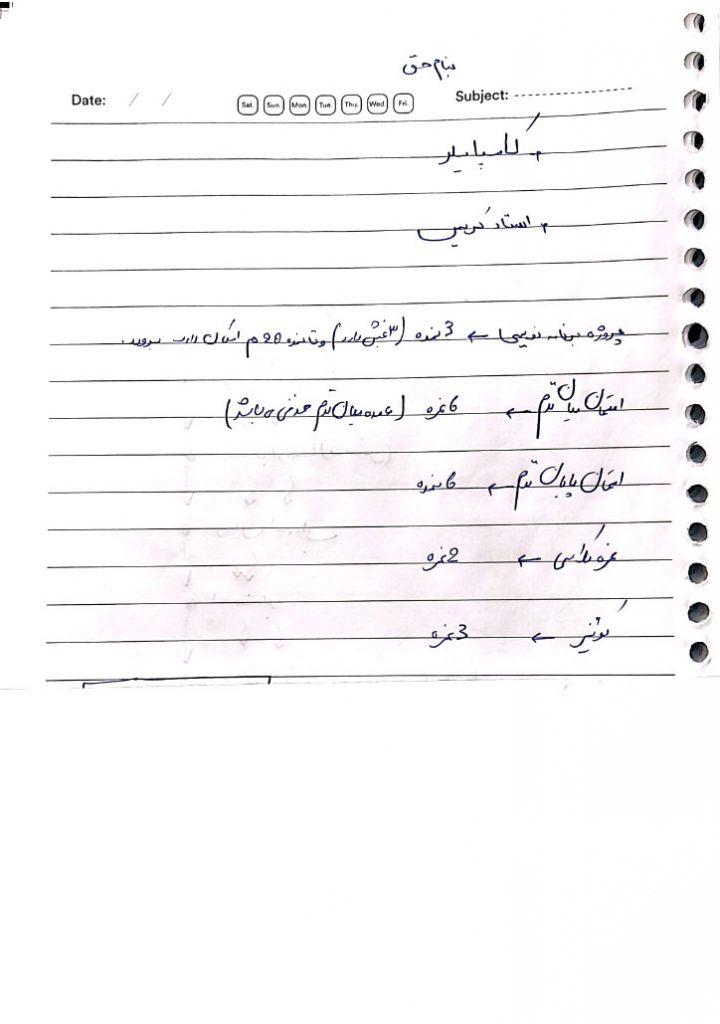 بنام حق
Date: / / Sat. Sun. Mon. Tue. Thu. Wed. Fri. Subject:
کامپایلر
استاد کریمی
پروژه برنامه نویسی ← 3 نمره (۳ بخش دارد) و تا نمره 20 م امکان دارد برود.
امتحان میان ترم ← 6 نمره (میان ترم حذفی می باشد)
امتحان پایان ترم ← 6 نمره
← 2 نمره
کوئیز ← 3 نمره